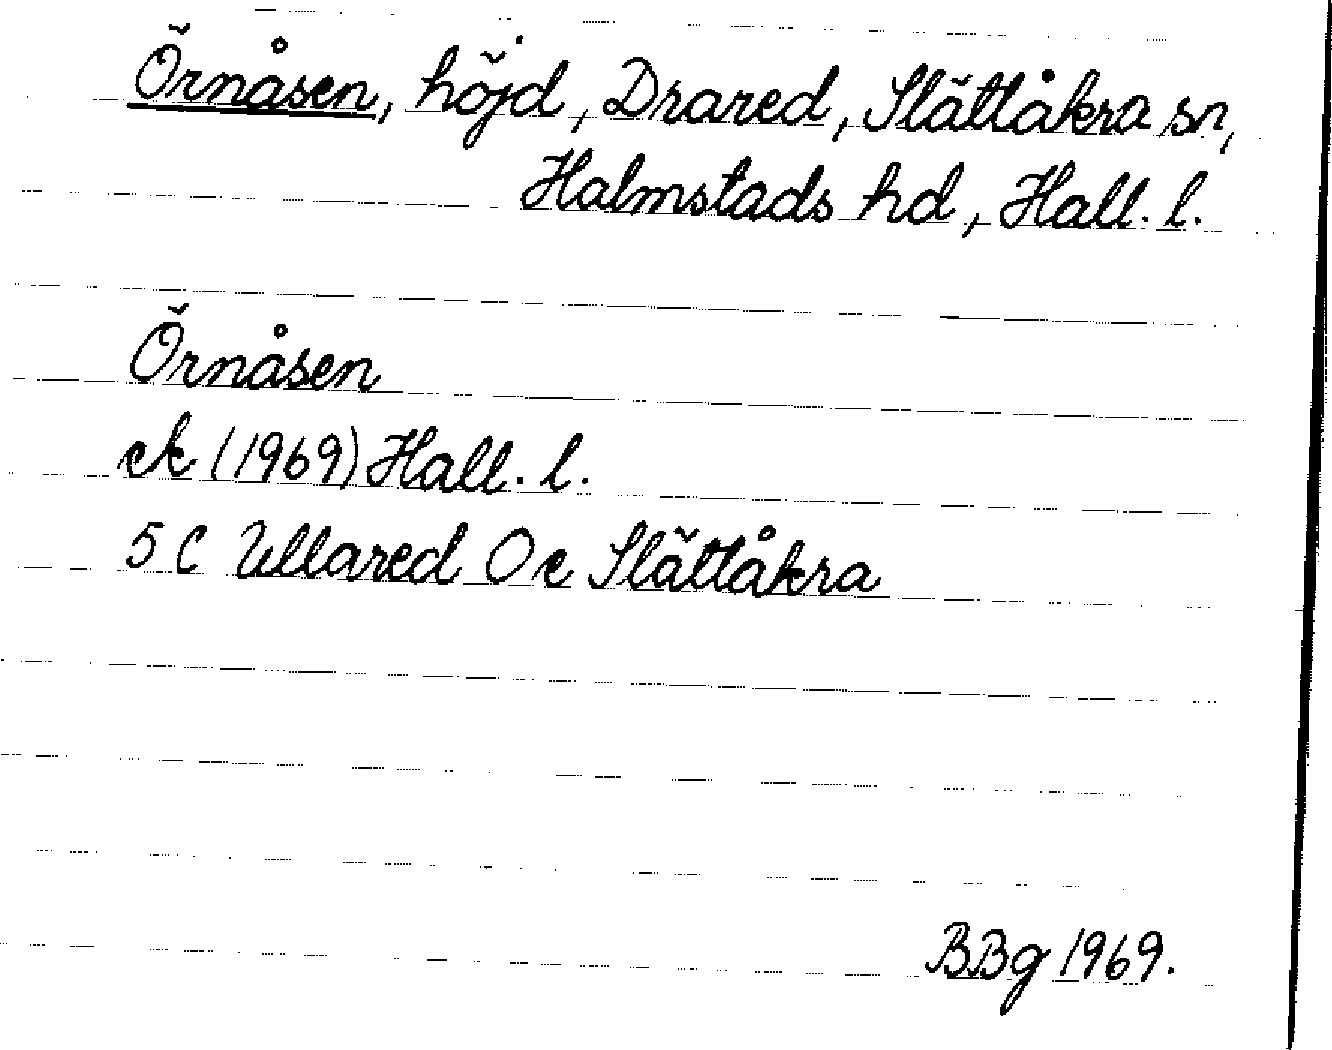 Örnåsen, höjd, Drared, Slättåkra sn,
Halmstads hd, Hall. l.
Örnåsen
ek (1969) Hall. l.
5 C Ullared 0 e Slättåkra
BBg 1969.